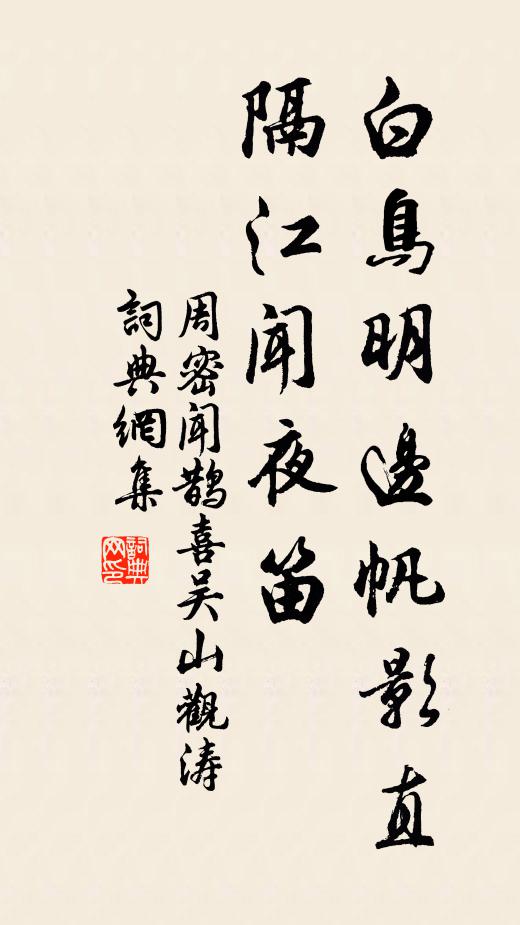 白鳥明邊帆影直
隔江聞夜笛
周密聞鵲喜吴山觀涛
詞典網集
詞典网印